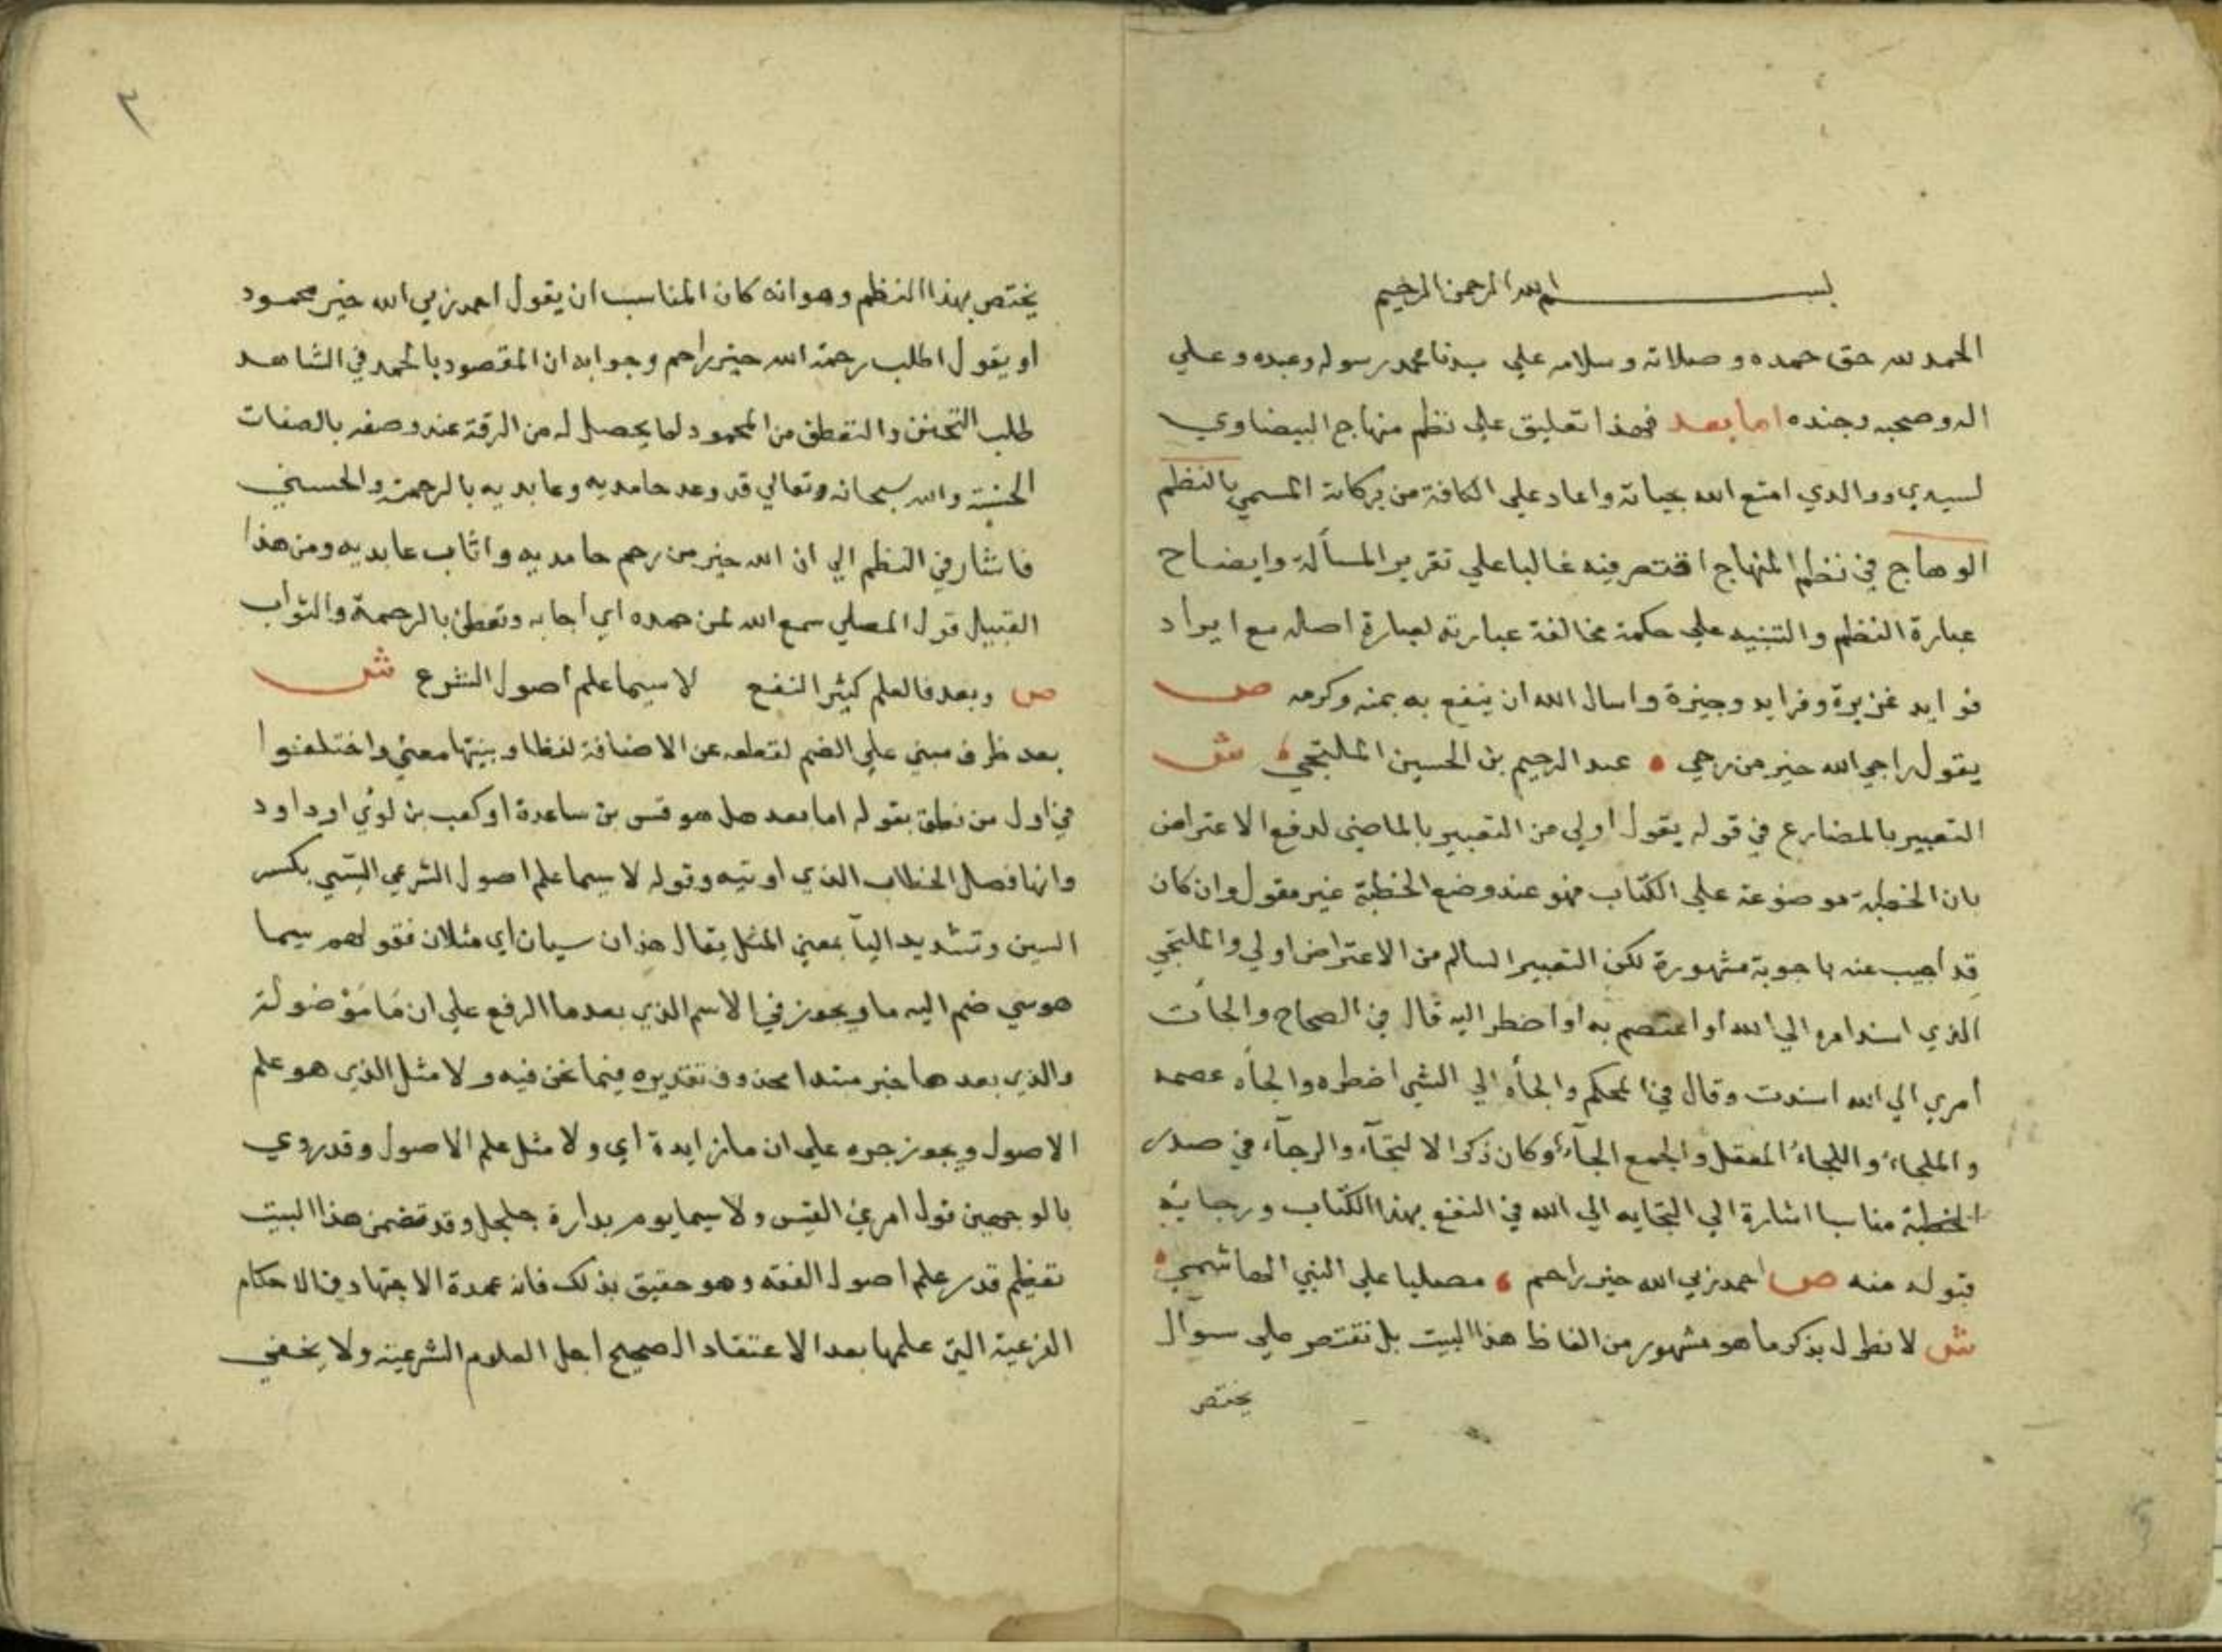 بسم الله الرحمن الرحيم
الحمد لله حق حمده وصلاته وسلامه علي سيدنا محمد رسوله وعبده وعلي
اله وصحبه وجنده اما بعد فهذا تعليق علي نظم منهاج البيضاوي
لسيدي ووالدي امتع الله بحياته واعاد علي الكافة من بركاته المسمي بالنظم
الوهاج في نظم المنهاج اقتصر فيه غالبا علي تقرير المسألة وايضاح
عبارة النظم والتنبيه علي حكمة مخالفة عبارته لعبارة اصله مع ايراد
فوايد غزيرة وفرايد وجيزة واسال الله ان ينفع به بمنه وكرمه ص
يقول راجي الله خير من رجي عبد الرحيم بن الحسين الملتجي ش
التعبير بالمضارع في قوله يقول اولي من التعبير بالماضي لدفع الاعتراض
بان الخطبة موضوعة علي الكتاب فهو عند وضع الخطبة غير مقول وان كان
قد أجيب عنه باجوبة مشهورة لكن التعبير السالم من الاعتراض اولي والملتجي
الذي اسند امره الي الله او اعتصم به او اضطر اليه قال في الصحاح والجأت
أمري الي الله اسندت وقال في المحكم والجأه الي الشي اضطره والجأه عصمه
والملجاء واللجاء المعقل والجمع الجآء وكان ذكر الالتجآء والرجآء في صدر
الخطبة مناسبا اشارة الي التجايه الي الله في النفع بهذا الكتاب ورجايه
قبوله منه ص احمد ربي الله خير راحم مصليا علي النبي الهاشمي
ش لا نطول بذكر ما هو مشهور من الفاظ هذا البيت بل نقتصر علي سوآل
يختص
٢
يختص بهذا النظم وهو انه كان المناسب ان يقول احمد ربي الله خير محمود
او يقول اطلب رحمة الله خير راحم وجوابه ان المقصود بالحمد في الشاهد
طلب التحنن والتعطف من المحمود لما يحصل له من الرقة عند وصفه بالصفات
الحسنة والله سبحانه وتعالي قد وعد حامديه وعابديه بالرحمة والحسني
فاشار في النظم الي ان الله خير من رحم حامديه واثاب عابديه ومن هذا
القبيل قول المصلي سمع الله لمن حمده اي أجابه وتعطف بالرحمة والثواب
ص وبعد فالعلم كثير النفع لا سيما علم أصول الشرع ش
بعد ظرف مبني علي الضم لقطعه عن الاضافة لفظا ونيتها معني واختلفوا
في اول من نطق بقوله اما بعد هل هو قس بن ساعدة او كعب بن لؤي او داود
وانها فصل الخطاب الذي اوتيه وقوله لا سيما علم اصول الشرعي السي بكسر
السين وتشديد اليآ بمعني المثل يقال هذان سيان اي مثلان فقولهم سيما
هو سي ضم اليه ما ويجوز في الاسم الذي بعدها الرفع علي ان ما موْصولة
والذي بعدها خبر مبتدا محذوف تقديره فيما نحن فيه ولا مثل الذي هو علم
الاصول ويجوز جره علي ان ما زايدة اي ولا مثل علم الاصول وقد روي
بالوجهين قول امرئ القيس ولا سيما يوم بدارة جلجل وقد تضمن هذا البيت
تعظيم قدر علم اصول الفقه وهو حقيق بذلك فانه عمدة الاجتهاد في الاحكام
الفرعية التي علمها بعد الاعتقاد الصحيح اجل العلوم الشرعية ولا يخفي